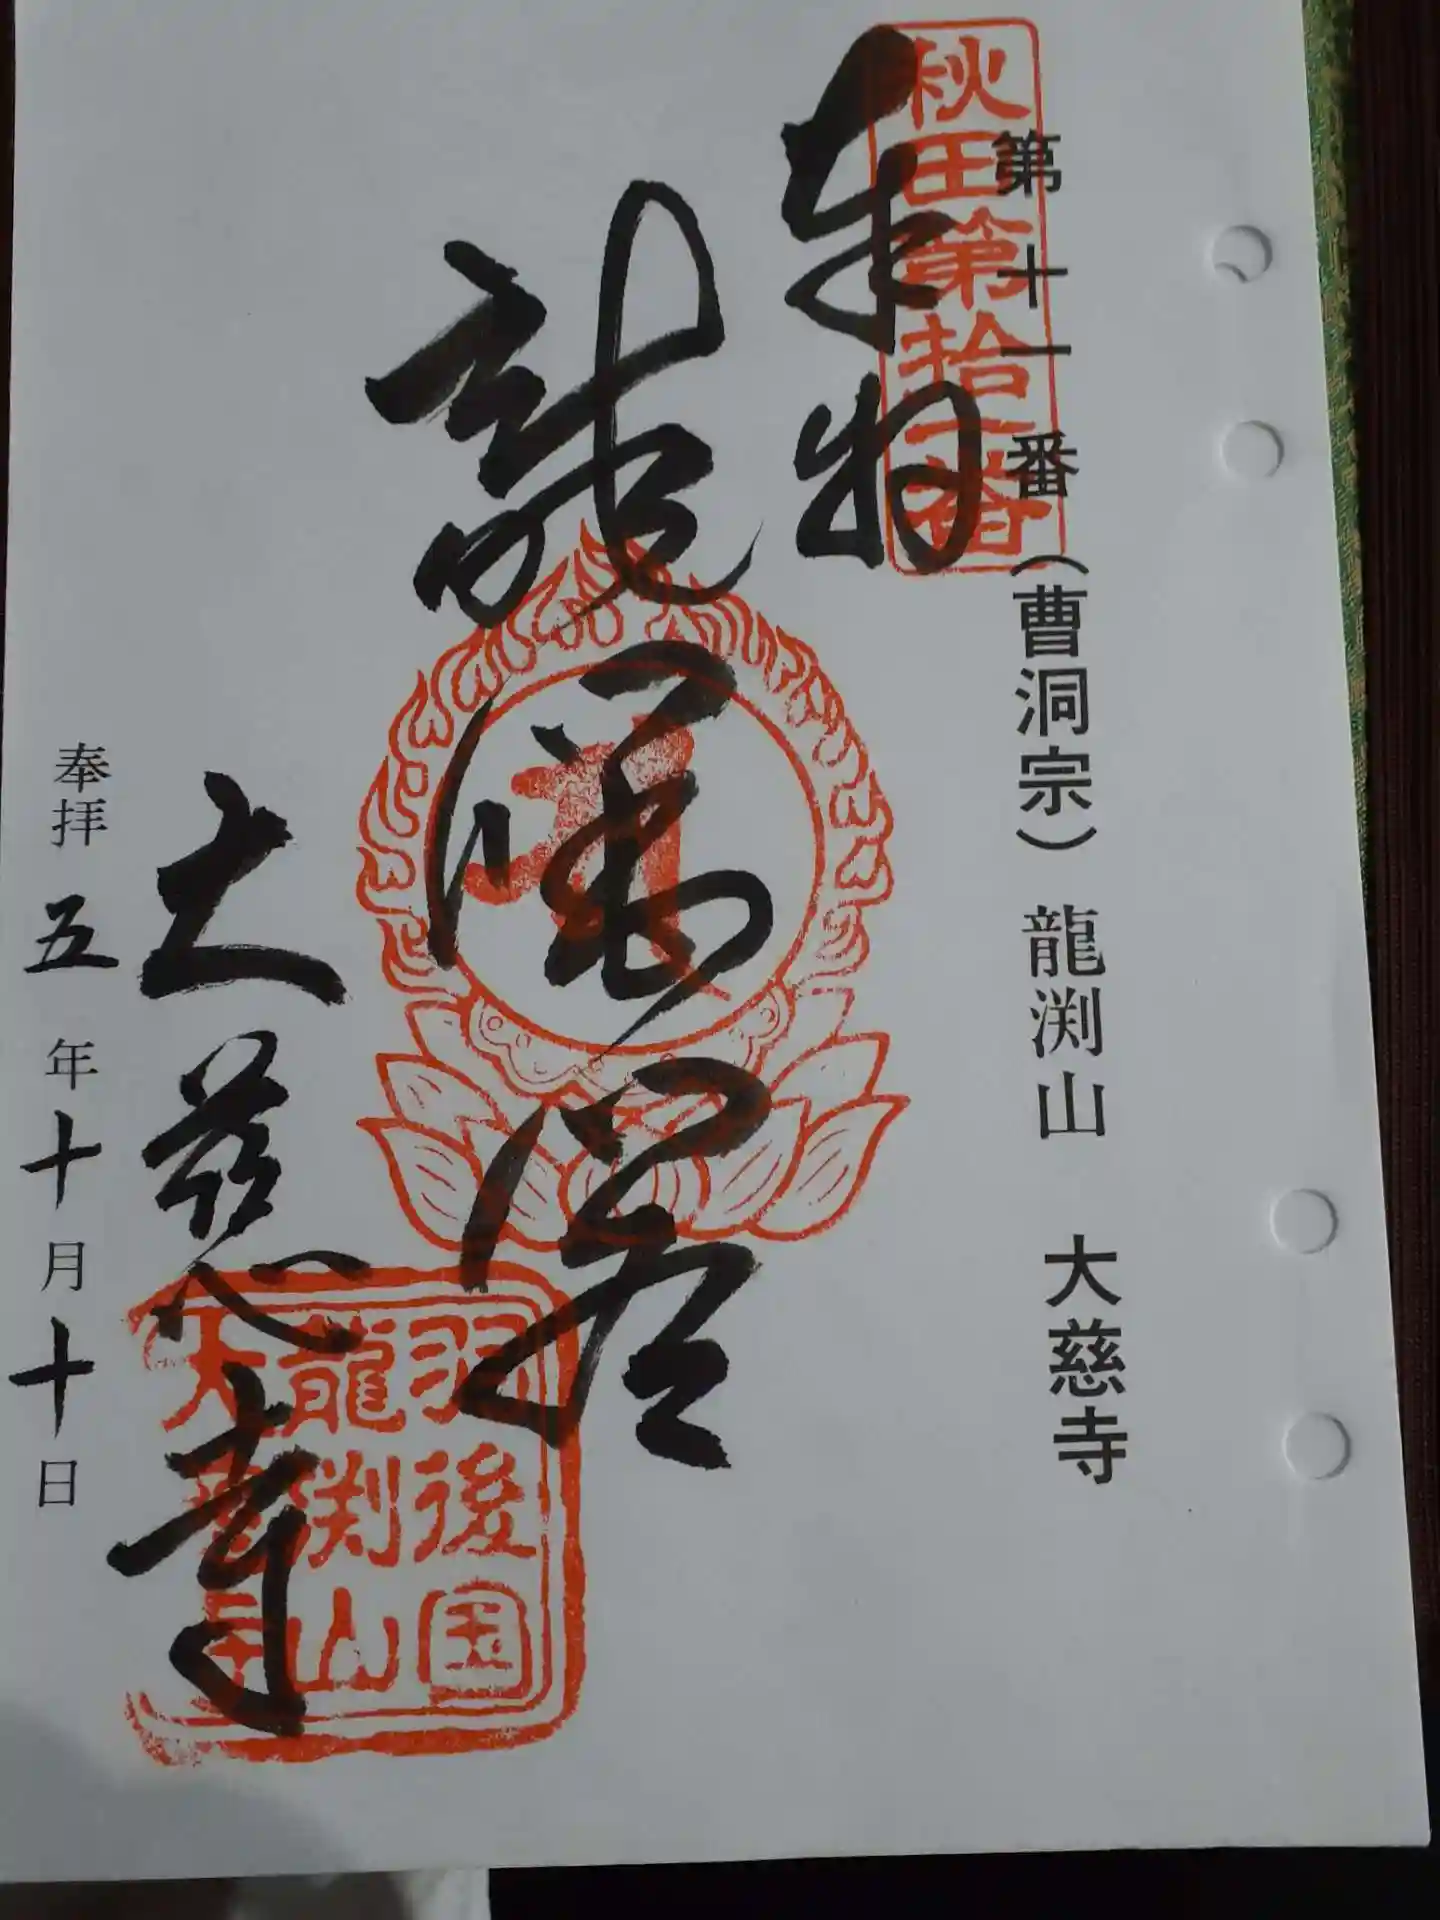 第十一番（曹洞宗）龍渕山　大慈寺
秋田第拾一番
奉拝
大慈寺
羽後国
龍渕山
大慈寺
奉拝　五年十月十日